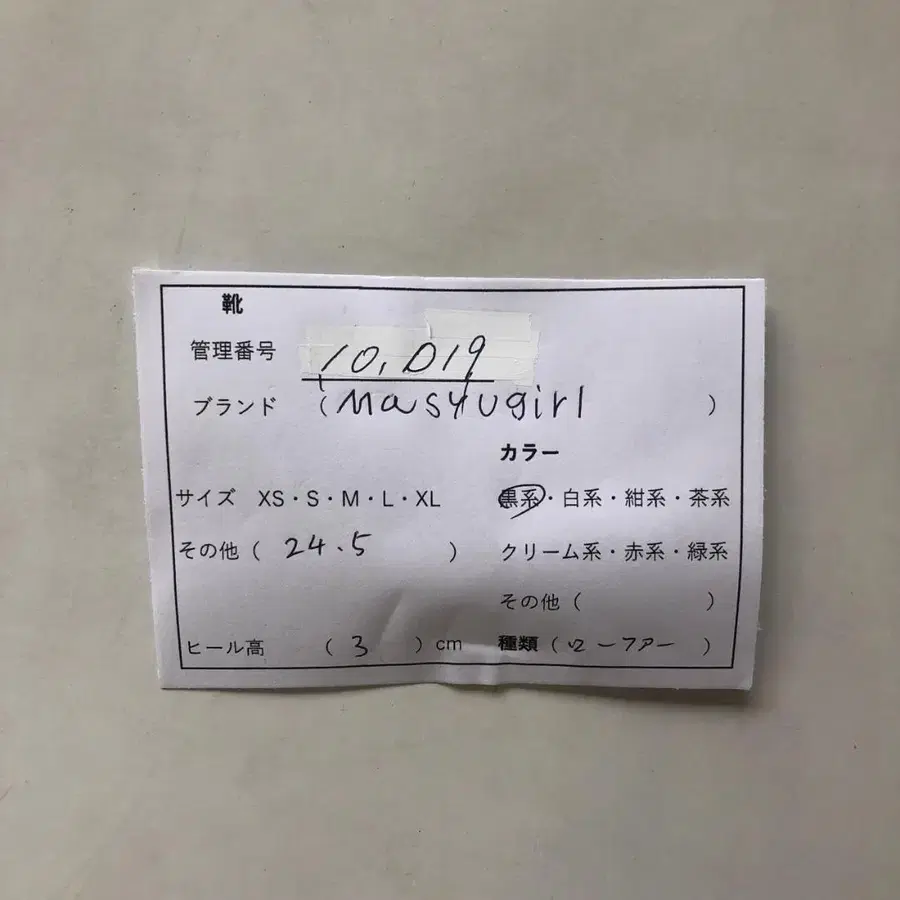 靴
管理番号 10,D19
ブランド (masyugirl)
カラー
サイズ XS・S・M・L・XL 黒系・白系・紺系・茶系
その他( 24.5 ) クリーム系・赤系・緑系
その他( )
ヒール高 ( 3 ) cm 種類 (ローファー )